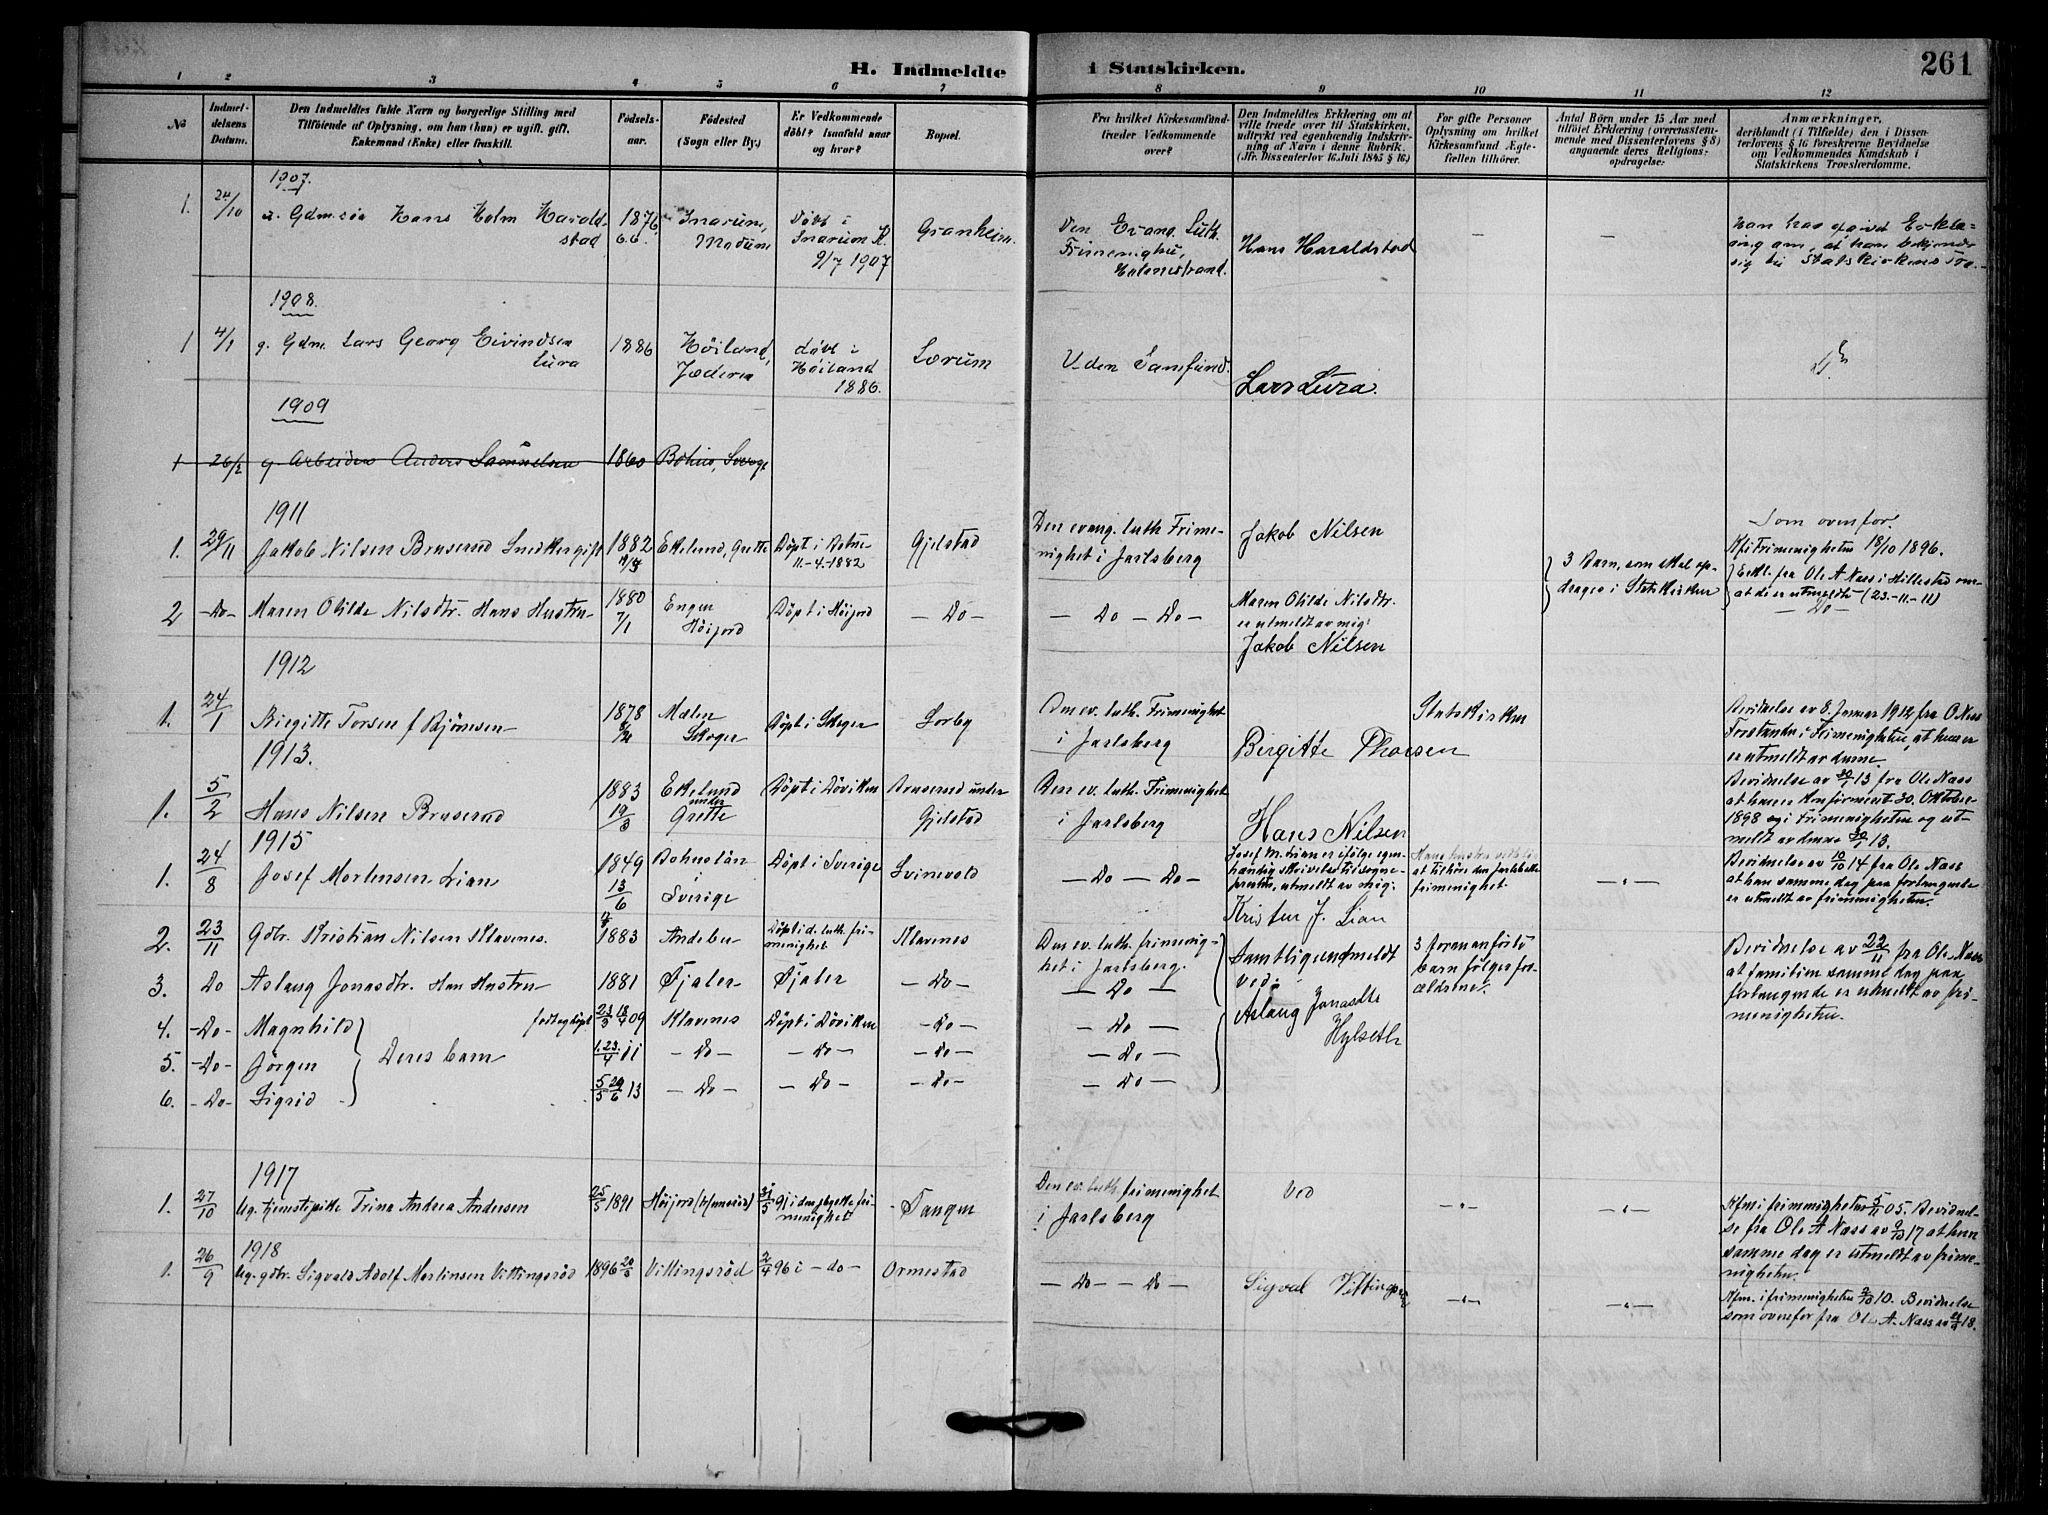 H. Indmeldte i Statskirken.
261
1 2 3 4 5 6 7 8 9 10 11 12
No
Indmel-
delsens
Datum.
Den Indmeldtes fulde Navn og borgerlige Stilling med
Tilföiende af Oplysning, om han (hun) er ugift, gift,
Enkemand (Enke) eller fraskilt.
Födsels-
aar.
Födested
(Sogn eller By.)
Er Vedkommende
döbt? Isaafald naar
og hvor?
Bopæl.
Fra hvilket Kirkesamfund-
træder Vedkommende
over?
Den Indmeldtes Erklæring om at
ville træde over til Statskirken,
udtrykt ved egenhændig Indskriv-
ning af Navn i denne Rubrik.
(Jfr. Dissenterlov 16. Juli 1845 § 16.)
For gifte Personer
Oplysning om hvilket
Kirkesamfund Ægte-
fællen tilhörer.
Antal Börn under 15 Aar med
tilföiet Erklæring (overensstem-
mende med Dissenterlovens § 8)
angaaende deres Religions-
opdragelse:
Anmærkninger,
deriblandt (i Tilfælde) den i Dissen-
terlovens § 16 foreskrevne Bevidnelse
om Vedkommendes Kundskab i
Statskirkens Troeslærdomme.
1907.
1. 24/10 Gdm.søn Hans Holm Harald-
stad
1876
6.6.
Snarum,
Modum
Døbt i
Snarum K.
9/7 1907
Granheim.
Den Evang. Luth.
Frimenighed,
Holmestrand.
Hans Haraldstad
—
—
Han har afgivet Erklæ-
ring om, at han bekjender
sig til Statskirkens Tro.
1908.
1 4/1 g. Gdm. Lars Georg Eivindsen
Lura
1886
Høiland,
Jæderen
døbt i
Høiland
1886.
Sørum
Uden Samfund.
Lars Lura.
1909
1 26/2 g. Arbeider Anders Samuelsen 1860 Bohus, Sverge
1911
1. 29/11 Jakob Nilsen Bruserud Snedker gift
1882
Ekelund, Grette
Döpt i Botne
11.-4.-1882
Gjelstad
Den evang. luth Frime-
nighet i Jarlsberg
Jakob Nilsen
3 Barn, som skal op-
drages i Statskirken
Som ovenfor.
Kf i Frimenigheten 18/10 1896.
Erkl. fra Ole A Nass i Hillestad om
at di er utmeldte (23.-11.-11)
2 —Do— Maren Otilde Nilsdtr. Hans Hustru
1880
7/1
Engen
Höijord
Döpt i Höijord
— Do —
— Do — Do —
Maren Otilde Nilsdtr.
er utmeldt av mig:
Jakob Nilsen
— Do —
1912
1. 24/1 Birgitte Torsen f Bjørnsen
1878
Mælen
Skoger
Döpt i Skoger
Sorby
Den ev. luth. Frimenighet
i Jarlsberg
Birgitte Thorsen
Statskirken
Bevidnelse av 8. Januar 1912 fra O Nass
Forstander i Frimenigheten, at hun er
er utmeldt av denne.
1913.
1. 5/2 Hans Nilsen Bruserud
1883
19/3
Ekelund
under
Grette
Döpt i Döviken
Bruserud under
Gjelstad
Den ev. luth. Frimenighet
i Jarlsberg
Hans Nilsen
Bevidnelse av 30/1 13 fra Ole Nass
at han er konfirmert 30. Oktober
1898 og i Frimenigheten og ut-
meldt av denne 30/1 13.
1915
1. 24/8 Josef Mortensen Lian
1849
13/6
Bohuslän
Sverige
Döpt i Sverige
Svinevold
— Do — Do —
Josef M. Lian er ifölge egen-
händig skrivelse til sogne-
presten, utmeldt av mig:
Kristen J. Lian
Hans hustru
at tilhöre den Jarlsbergske
frimenighet.
— " —
Bevidnelse av 10/10 14 fra Ole Nass
at han samme dag paa forlangende
er utmeldt av frimenigheten.
2. 23/11 Gdbr. Kristian Nilsen Klavenes.
1883
Andebu
Döpt i d. luth. fri-
menighet
Klavenes
Den ev. luth. frimenig-
het i Jarlsberg.
Samtlige indmeldt
ved:
Aslaug Jonasdtr
Hylseth
3 foranførte
barn følger for-
ældrene.
Bevidnelse av 22/11 fra Ole Nass
at familien samme dag paa
forlangende er utmeldt av fri-
menigheten.
3. Do Aslaug Jonasdtr. Hans Hustru 1881 Fjaler Fjaler — Do — — Do —
4. —Do— Magnhild födt og döpt 23/3 18/4 09 Klavenes Döpt i Döviken —Do— — Do —
5. —Do— Jørgen Deres barn 1. 23./4 11 — Do — — Do — — Do — — Do —
6. —Do— Sigrid 5/5 29/6 13 — Do — — Do — — Do — — Do —
1917
1. 27/10 Ug. tjenestepike Trina Andrea Andersen
25/5 1891
Höijord
31/5 91 i den jarlsb. fri-
menighet
Tangen
Den ev. luth. frimenighet
i Jarlsberg
Ved
— " —
— " —
Kfm i frimenigheten 5/11 05. Bevidnel-
se fra Ole A Nass av 9/10 17 at hun
samme dag er utmeldt av frime-
nigheten.
1918
1. 26/9 Ug. gdbr. Sigvald Adolf Martinsen Vittingsröd
1896 20/3
Vittingsröd
2/4 96 i — do —
Ormestad
— Do — Do —
Sigval Vittingsrød
— " —
— " —
Kfm. i frimenigheten 2/10 10. Bevidnelse
som ovenfor fra Ole A. Nass av 21/9 18.